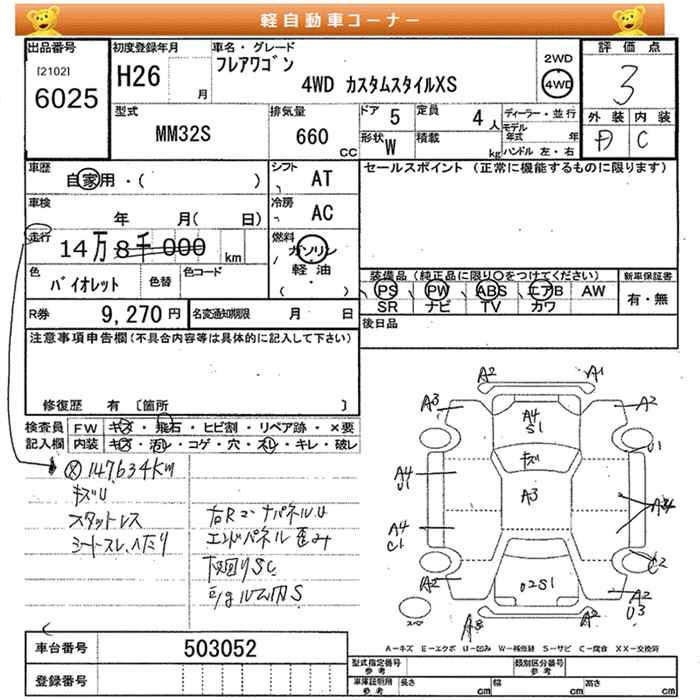 軽自動車コーナー
出品番号
[2102]
6025
初度登録年月
H26
月
車名・グレード
フレアワゴン
4WD カスタムスタイルXS
2WD
4WD
評価点
3
型式
MM32S
排気量
660
CC
ドア
5
定員
4
人
形状
W
積載
kg
ディーラー・並行
モデル年式
年
ハンドル 左・右
外装
内装
C
車歴
自家用・(
)
シフト
AT
セールスポイント (正常に機能するものに限ります)
車検
年
月(
日)
冷房
AC
走行
14万 8千 000
km
燃料
ガソリン
軽油
( ・ )
色
バイオレット
色替
色コード
装備品 (純正品に限り○をつけてください)
PS
PW
ABS
エアB
AW
SR
ナビ
TV
カワ
新車保証書
有・無
R券
9,270 円
名変通知期限
月
日
後日品
注意事項申告欄 (不具合内容等は具体的に記入して下さい)
修復歴 有 〔箇所
〕
検査員
記入欄
FW
キズ・飛石・ヒビ割・リペア跡・×要
内装
キズ・汚レ・コゲ・穴・スレ・キレ・破レ
147634Km
キズU
スタットレス
シートスレ、ヘタリ
右RコーナパネルU
エンドパネル歪み
下回りSC
Eigルーム内S
A2
A1
A3
A2
A4
S1
キズ
U1
A4
U1
A3
A4
C1
C2
A2
02S1
A2
U3
スペ
A-キズ E-エクボ U-凹み W-補修跡 S-サビ C-腐食 XX-交換済
車台番号
503052
登録番号
型式指定番号
参考
類別区分番号
参考
車庫証明用
参考
長さ
cm
幅
cm
高さ
cm